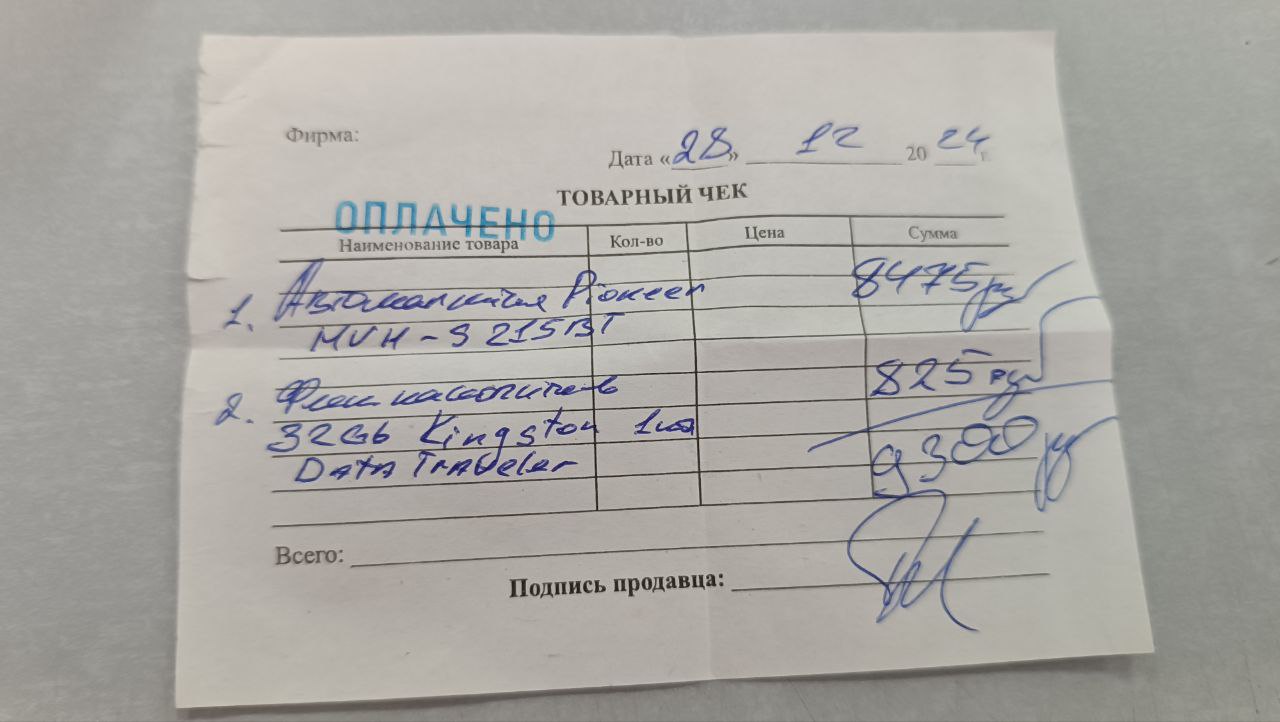 Фирма:
Дата «28» 12 2024 г.
ТОВАРНЫЙ ЧЕК
ОПЛАЧЕНО
Наименование товара Кол-во Цена Сумма
1. Автомагнитола Pioneer 8475 ру
MVH-S215BT
2. Флеш накопитель 825 ру
32Gb Kingston 1шт
Data Traveler 9300 ру
Всего:
Подпись продавца: